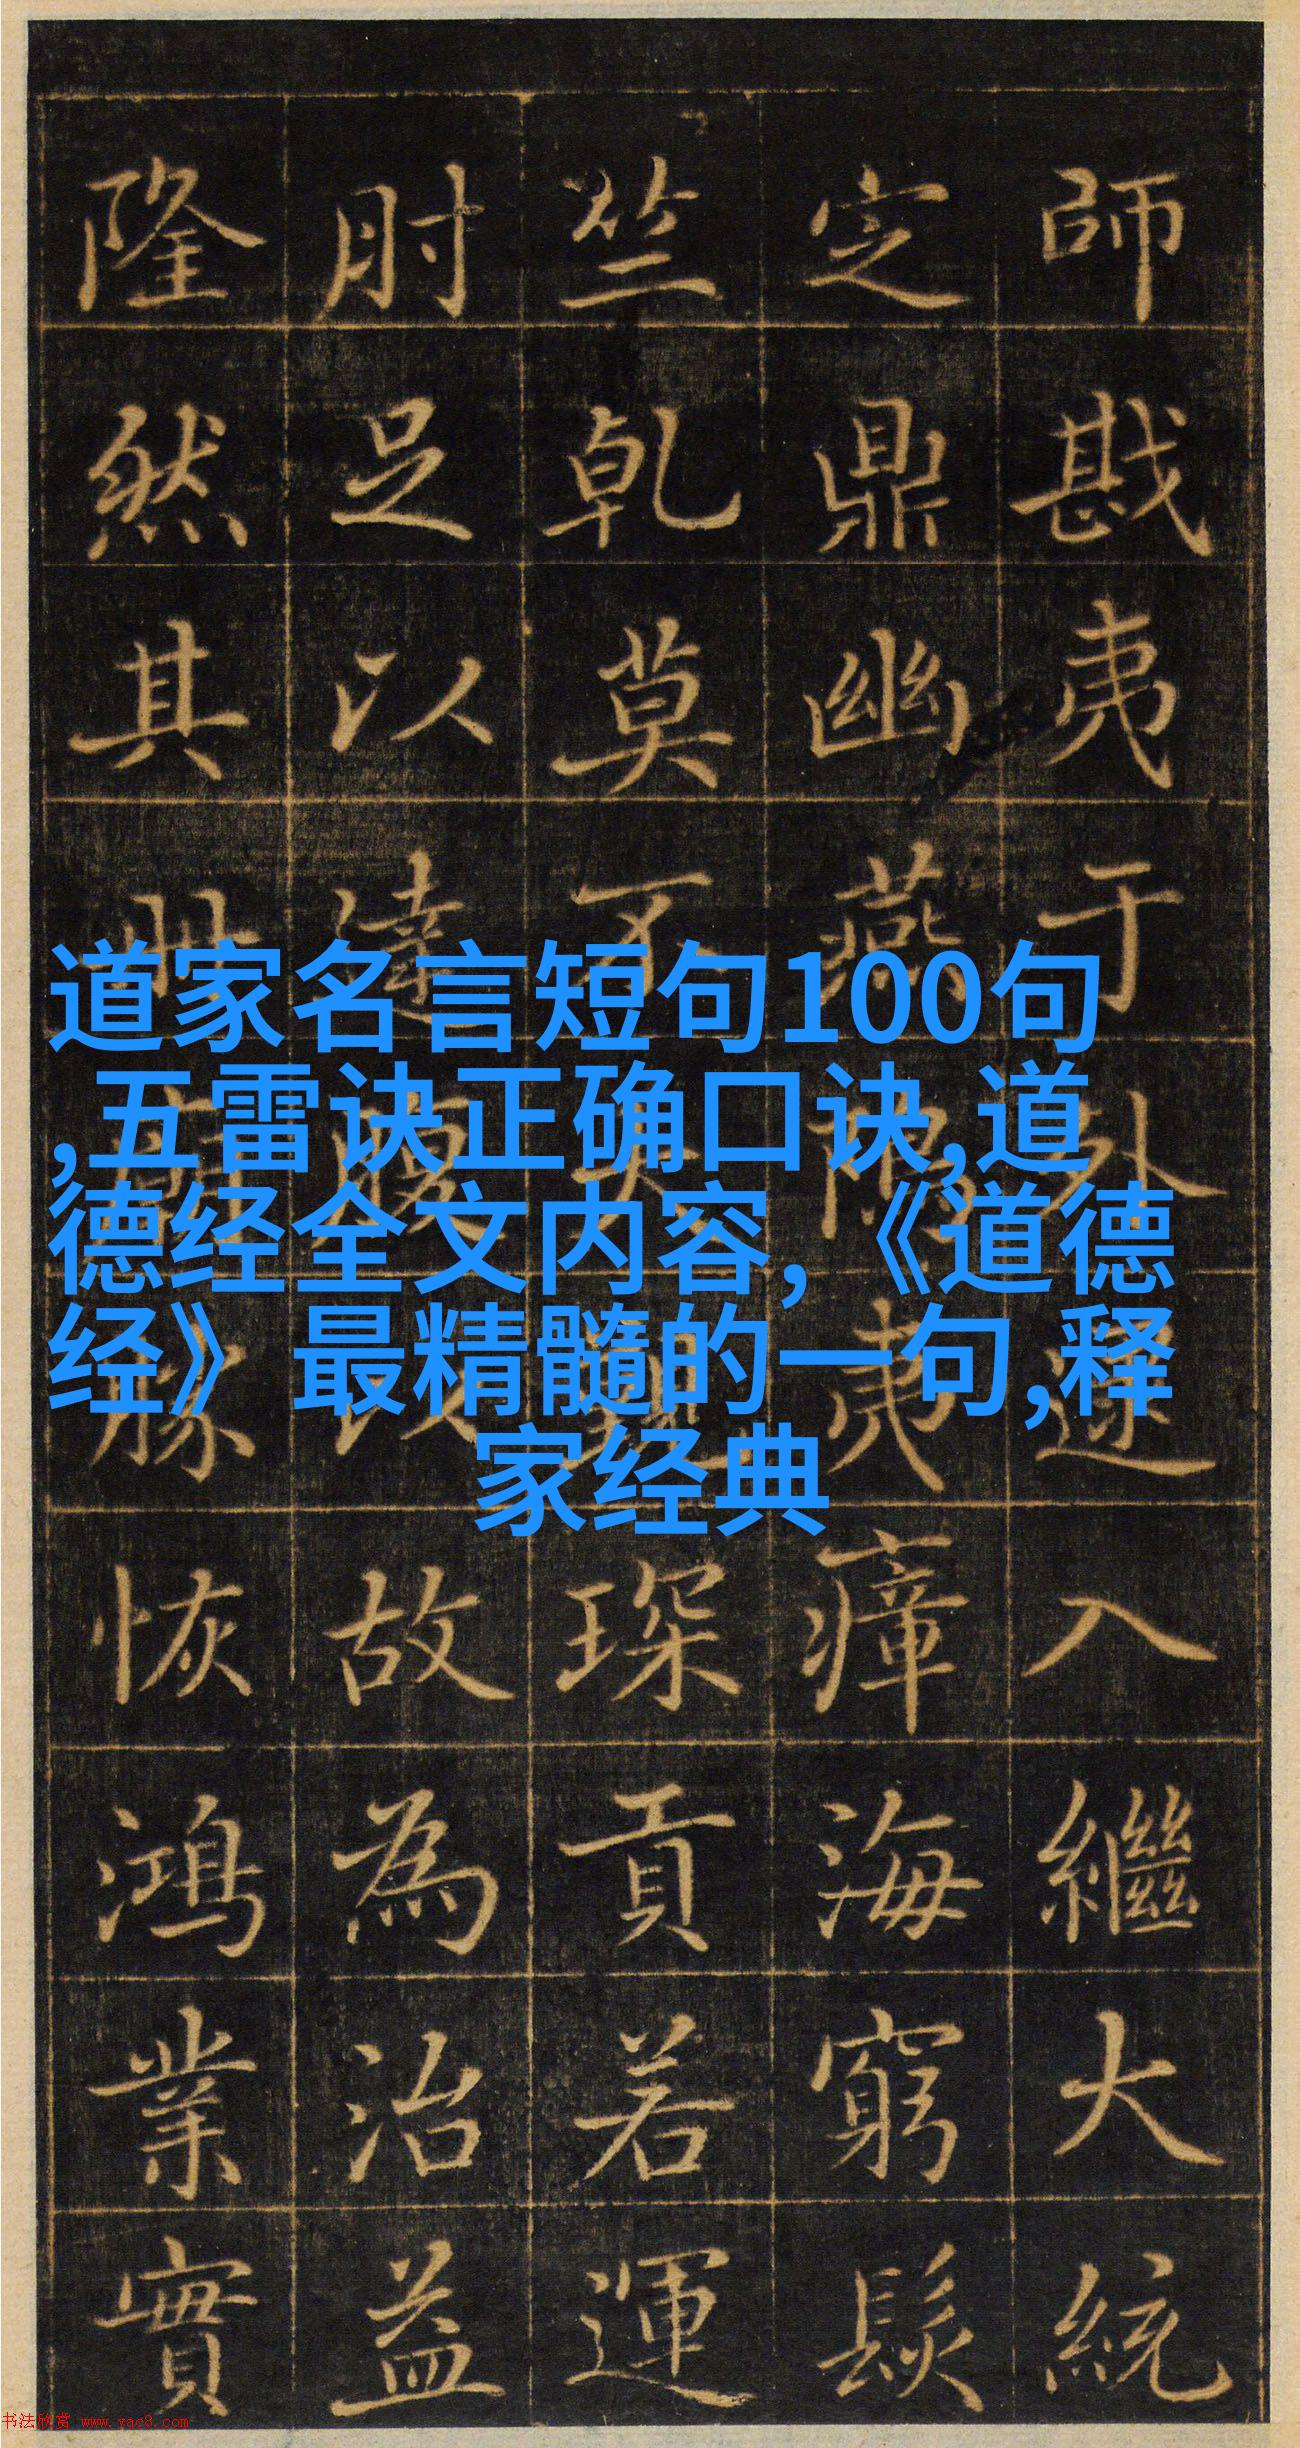 師戡夷于外遂入繼大統
定鼎幽燕夷瘴海窮髮
竺乾莫不琛貢若運
肘足以達故為治益
隆然其恢鴻業實
道家名言短句100句
,五雷诀正确口诀,道
德经全文内容,《道德
经》最精髓的一句,释
家经典
书法欣赏 www.yac8.com